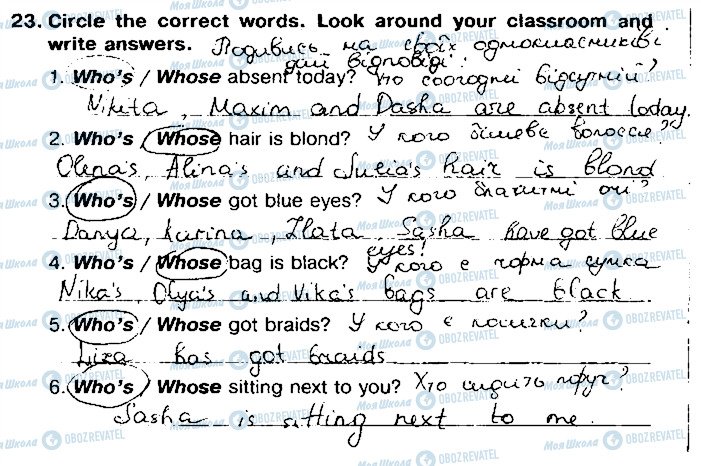 23. Circle the correct words. Look around your classroom and
write answers. Подивись на своїх однокласників і
дай відповіді.
1. Who's / Whose absent today? Хто сьогодні відсутній?
Nikita, Maxim and Dasha are absent today.
2. Who's / Whose hair is blond? У кого білеве волосся?
Olena's, Alina's and Julia's hair is blond
3. Who's / Whose got blue eyes? У кого блакитні очі?
Danya, Karina, Zlata, Sasha have got blue
eyes!
4. Who's / Whose bag is black? У кого є чорна сумка
Nika's, Olya's and Vika's bags are black.
5. Who's / Whose got braids? У кого є косички?
Liza has got braids
6. Who's / Whose sitting next to you? Хто сидить поруч?
Sasha is sitting next to me.